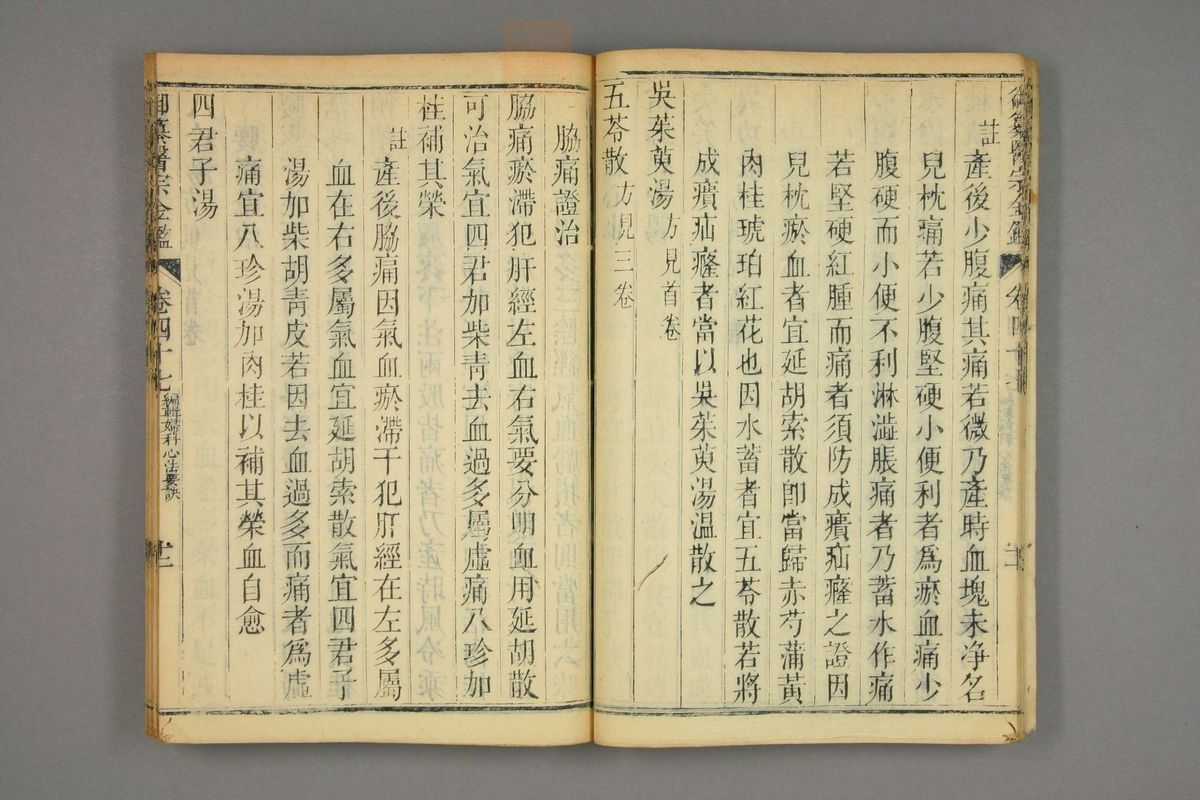 註
產後少腹痛其痛若微乃產時血塊未净名
兒枕痛若少腹堅硬小便利者爲瘀血痛少
腹硬而小便不利淋澁脹痛者乃蓄水作痛
若堅硬紅腫而痛者須防成㿉疝癃之證因
兒枕瘀血者宜延胡索散卽當歸赤芍蒲黃
肉桂琥珀紅花也因水蓄者宜五苓散若將
成㿉疝癃者當以吳茱萸湯温散之
吳茱萸湯方見首卷
五苓散方見三卷
脇痛證治
脇痛瘀滯犯肝經左血右氣要分明血用延胡散
可治氣宜四君加柴青去血過多屬虛痛八珍加
桂補其榮
註
產後脇痛因氣血瘀滯干犯肝經在左多屬
血在右多屬氣血宜延胡索散氣宜四君子
湯加柴胡靑皮若因去血過多而痛者爲虛
痛宜八珍湯加肉桂以補其榮血自愈
四君子湯
御纂醫宗金鑑 卷四十七 編輯婦科心法要訣